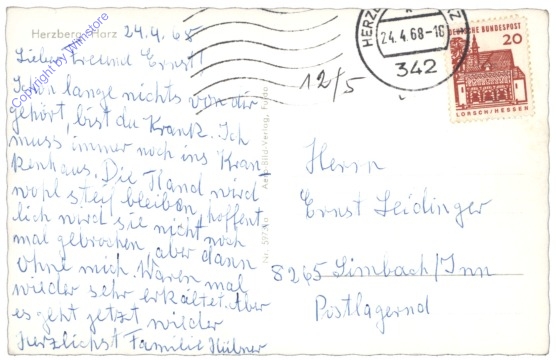 Herzberg/Harz
24.4.68
Lieber Freund Ernst!
Schon lange nichts von dir
gehört, bist du Krank. Ich
muss immer noch ins Kran-
kenhaus. Die Hand wird
wohl steif bleiben, hoffent
lich wird sie nicht noch
mal gebrochen, aber dann
ohne mich. Waren mal
wieder sehr erkältet. Aber
es geht jetzt wieder
Herzlichst Familie Hübner
Copyright by Winistore
24.4.68-16
342
DEUTSCHE BUNDESPOST
20
LORSCH/HESSEN
12/5
Herrn
Ernst Seidinger
8265 Simbach/Inn
Postlagernd